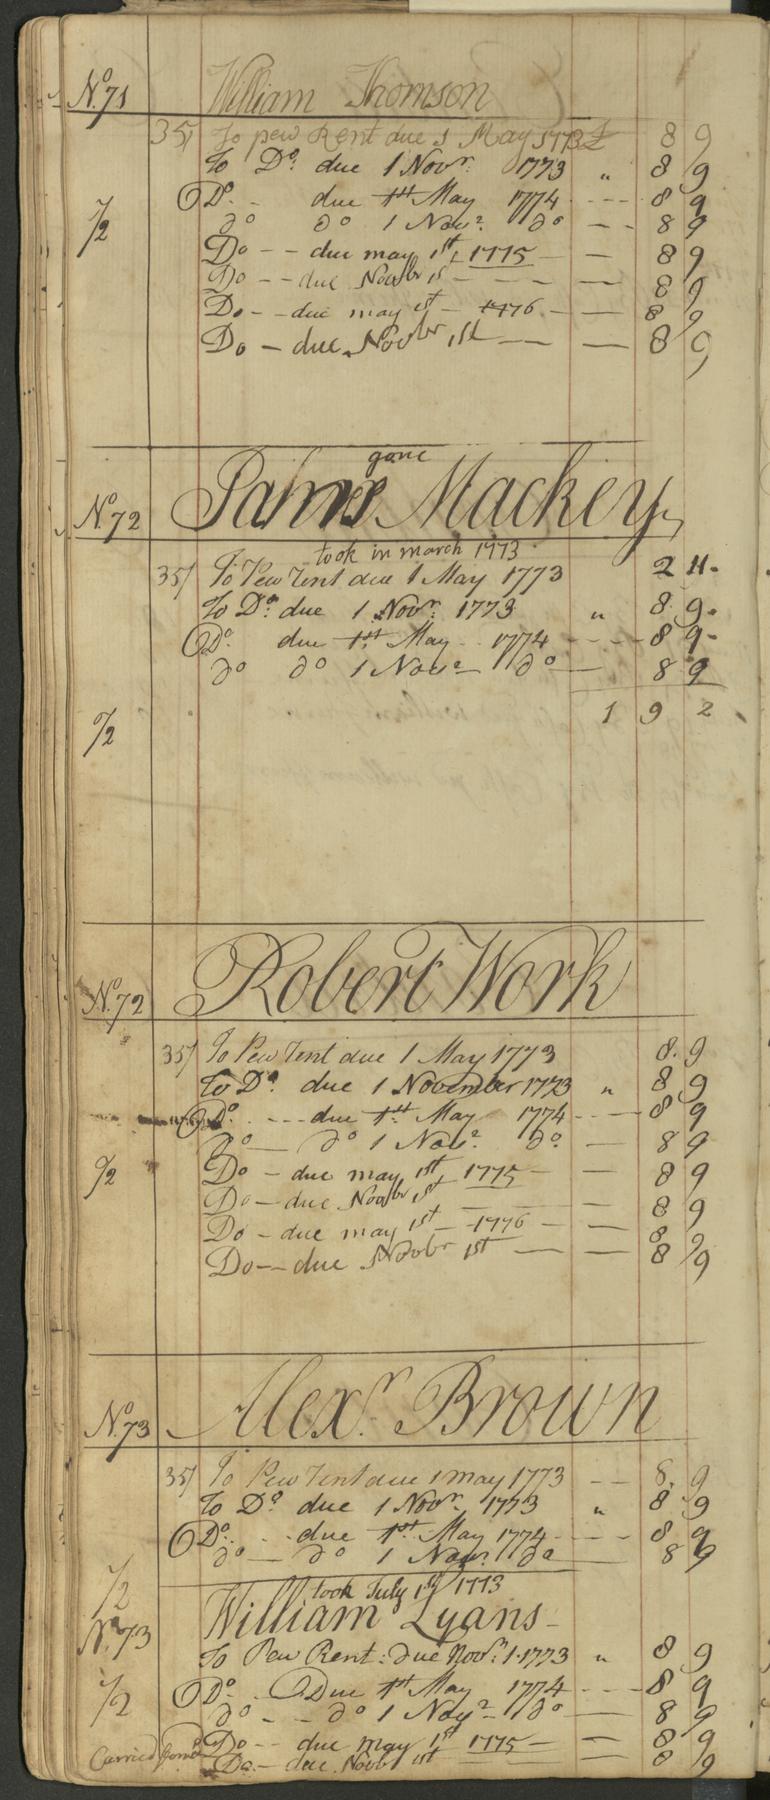 No. 71 William Thomson
35/ To pew Rent due 1 May 1773 £ 8 9
To Do. due 1 Novr. 1773 " 8 9
Do. due 1st May 1774 - - - 8 9
1/2 do do 1 Novr. do - - 8 9
Do - - due may 1st, 1775 - - 8 9
Do - - due Novbr 1st - - - - 8 9
Do - - due may 1st - 1776 - - 8 9
Do - due Novbr 1st - - 8 9
gone
No. 72 James Mackey
took in march 1773
35/ To Pew Rent due 1 May 1773 2 11
To Do. due 1 Novr. 1773 " 8 9
Do. due 1st May 1774 - - - 8 9
do do 1 Novr. do - 8 9
1 9 2
1/2
No. 72 Robert Work
35/ To Pew Rent due 1 May 1773 8 9
To Do. due 1 November 1773 " 8 9
Do. - - - due 1st May 1774 - - - 8 9
do - do 1 Novr. do - 8 9
1/2 Do - due may 1st 1775 - - 8 9
Do - due Novbr 1st - - 8 9
Do - due may 1st - 1776 - - 8 9
Do - - due Novbr 1st - - 8 9
No. 73 Alexr. Brown
35/ To Pew Rent due 1 may 1773 - - 8 9
To Do. due 1 Novr. 1773 " 8 9
Do. due 1st May 1774 - - - 8 9
do - do 1 Novr. do - 8 9
1/2 took July 1st 1773
No. 73 William Lyans
To Pew Rent: Due Novr. 1. 1773 " 8 9
1/2 Do. Due 1st May 1774 - - - 8 9
do - - do 1 Novr. do - - 8 9
Do - - due may 1st 1775 - - 8 9
Carried forwd Do - due Novbr 1st - - 8 9